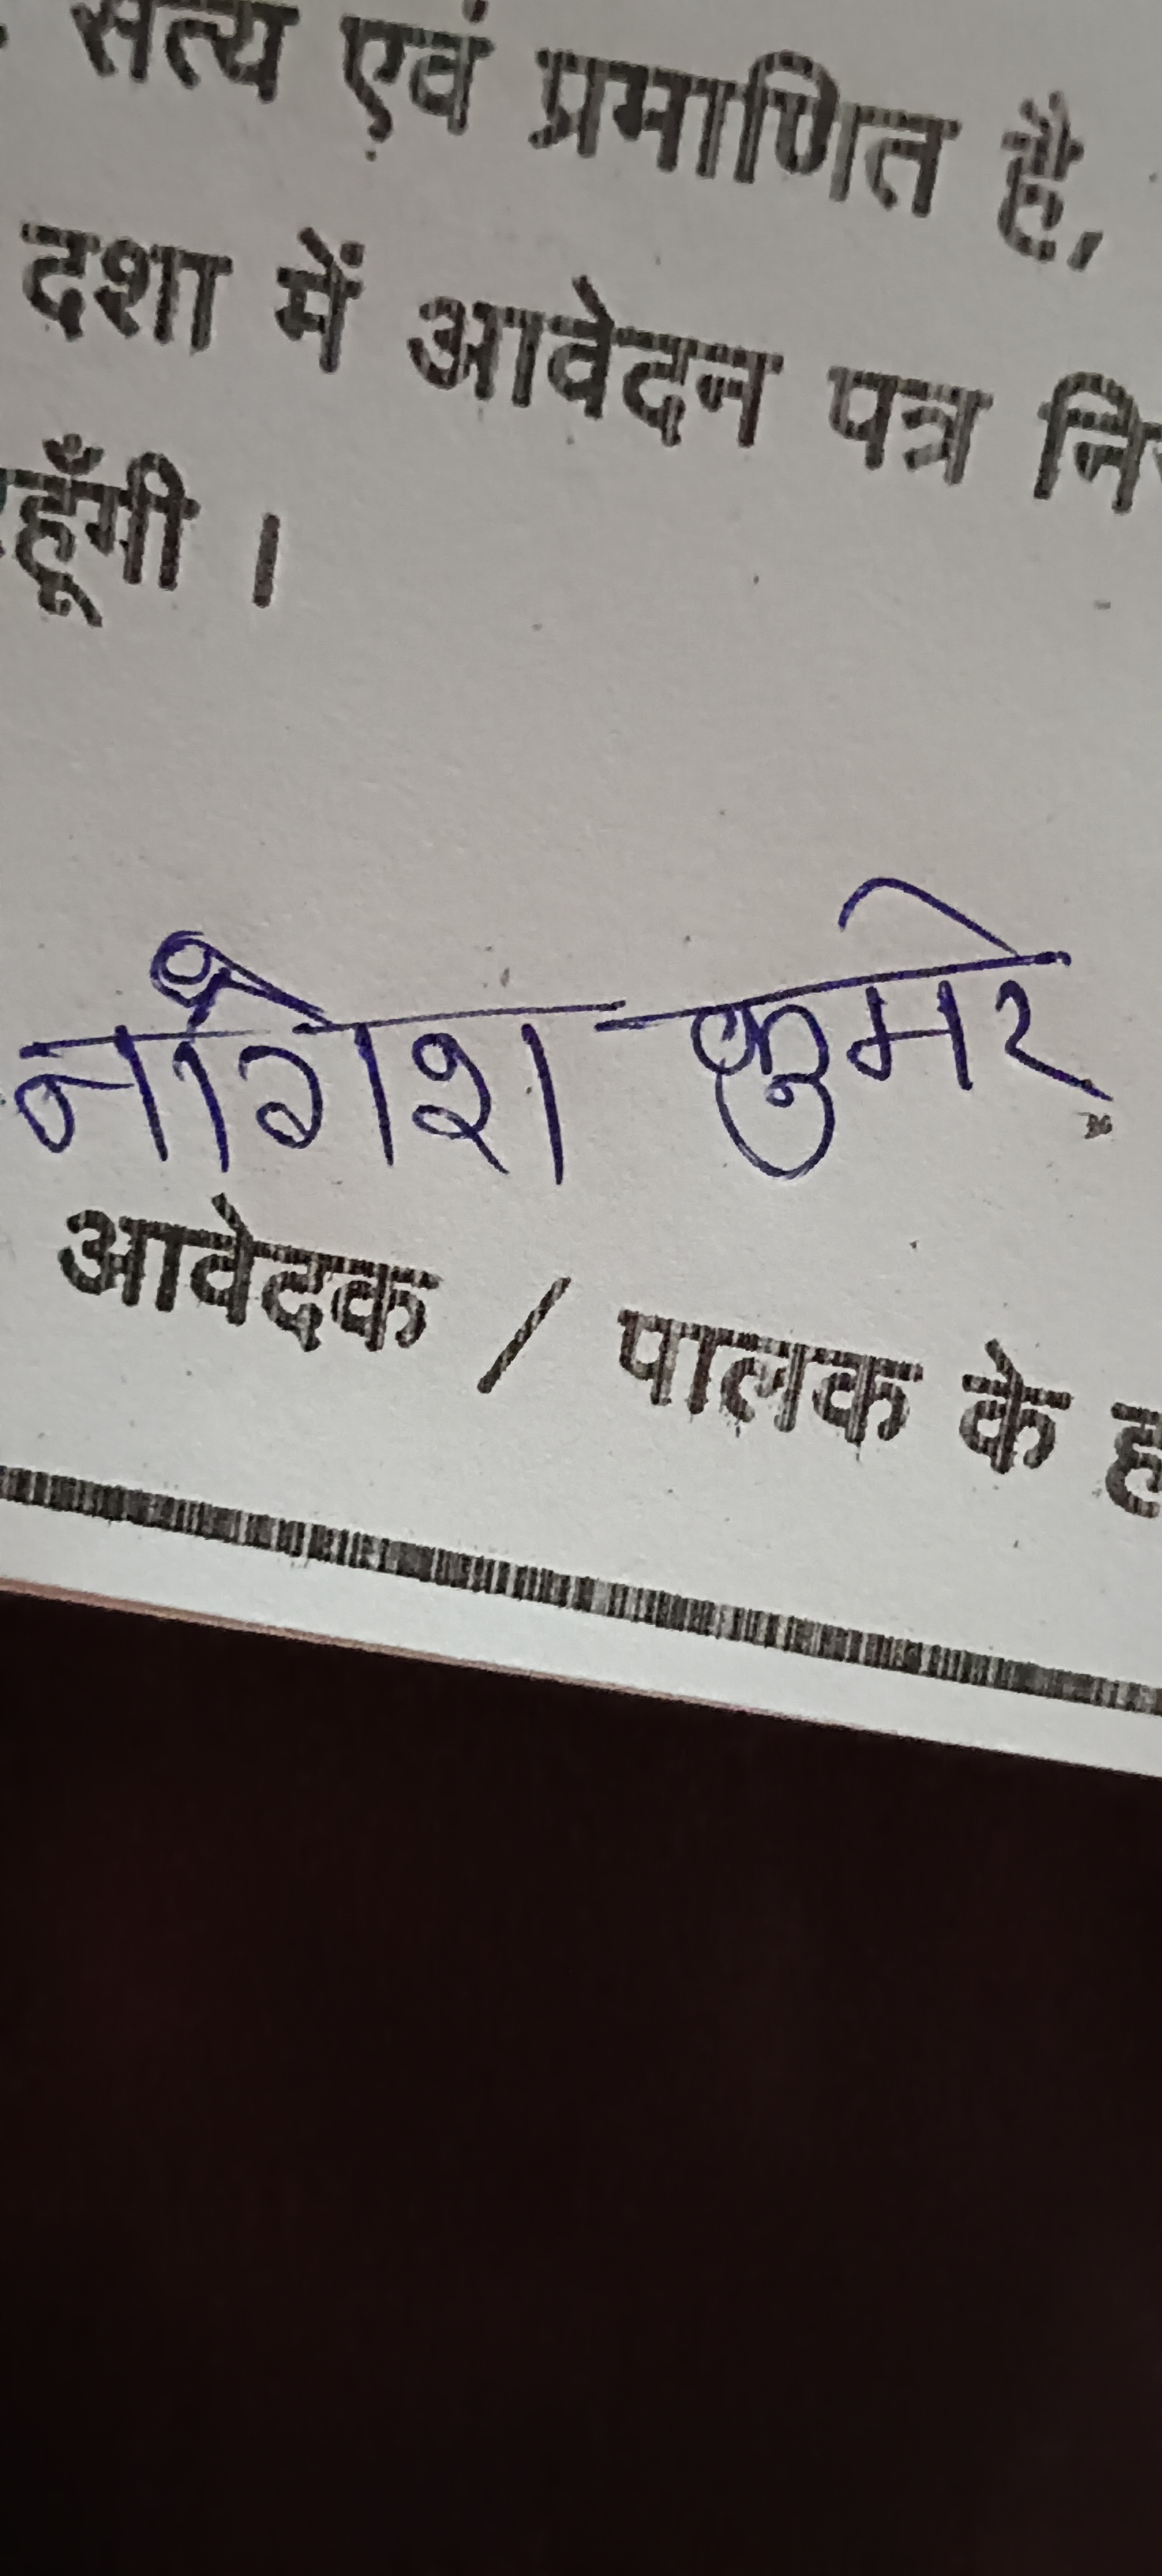 सत्य एवं प्रमाणित है,
दशा में आवेदन पत्र
हूँगी ।
नागेश कुमरे
आवेदक / पालक के